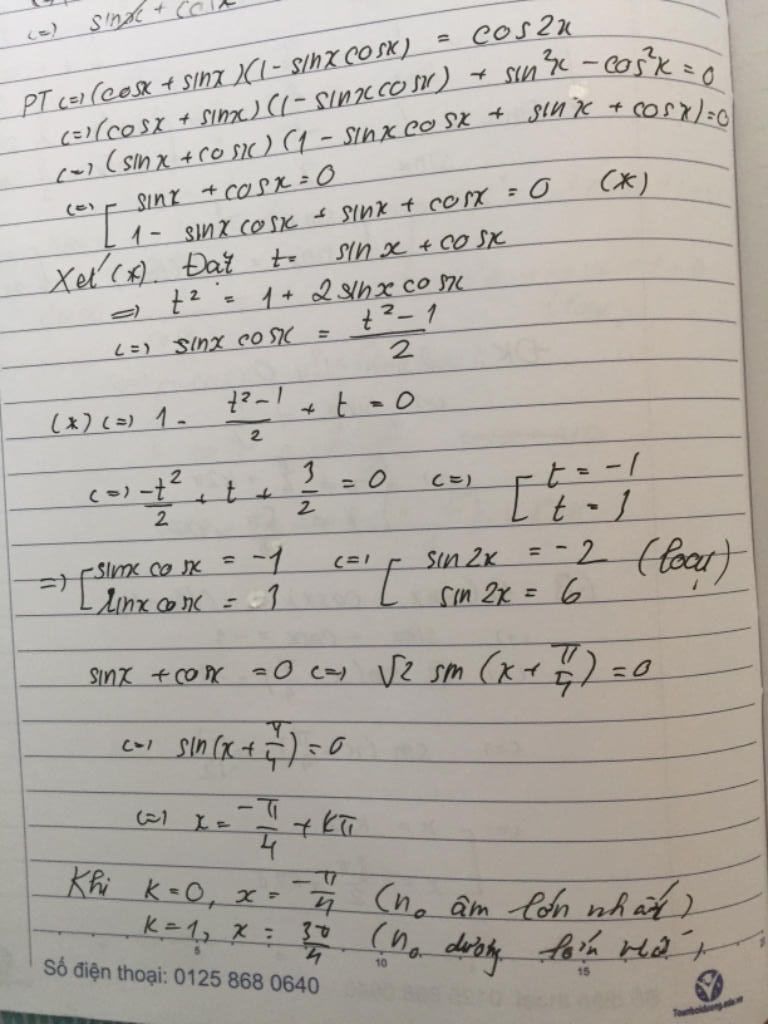 (=) sinx + cosx
PT (=) (cosx + sinx)(1 - sinxcosx) = cos2x
(=) (cosx + sinx)(1 - sinxcosx) + sin²x - cos²x = 0
(=) (sinx + cosx)(1 - sinxcosx + sinx + cosx) = 0
(=) [ sinx + cosx = 0
1 - sinxcosx + sinx + cosx = 0 (*)
Xét (*). Đặt t = sinx + cosx
=) t² = 1 + 2sinxcosx
(=) sinxcosx = (t² - 1)/2
(*) (=) 1 - (t² - 1)/2 + t = 0
(=) -t²/2 + t + 3/2 = 0 (=) [ t = -1
t = 3
=) [ sinxcosx = -1 (=) [ sin2x = -2 (loại)
sinxcosx = 3 sin2x = 6
sinx + cosx = 0 (=) √2 sin(x + π/4) = 0
(=) sin(x + π/4) = 0
(=) x = -π/4 + kπ
Khi k = 0, x = -π/4 (n₀ âm lớn nhất)
k = 1, x = 3π/4 (n₀ dương
5 10 15
Số điện thoại: 0125 868 0640
Toanboiduong.edu.vn